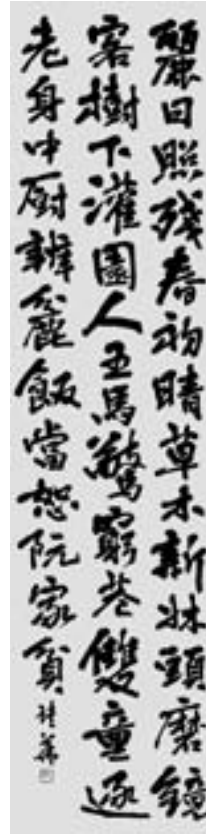 麗日照殘春初晴草木新牀頭磨鏡
客樹下灌園人五馬驚窮巷雙童逐
老身中厨辦麤飯當恕阮家貧